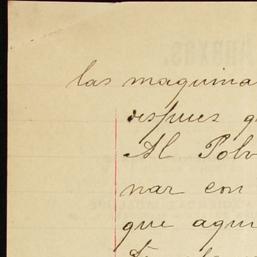 las maquina
despues q
Al Polv
nar con
que aqui